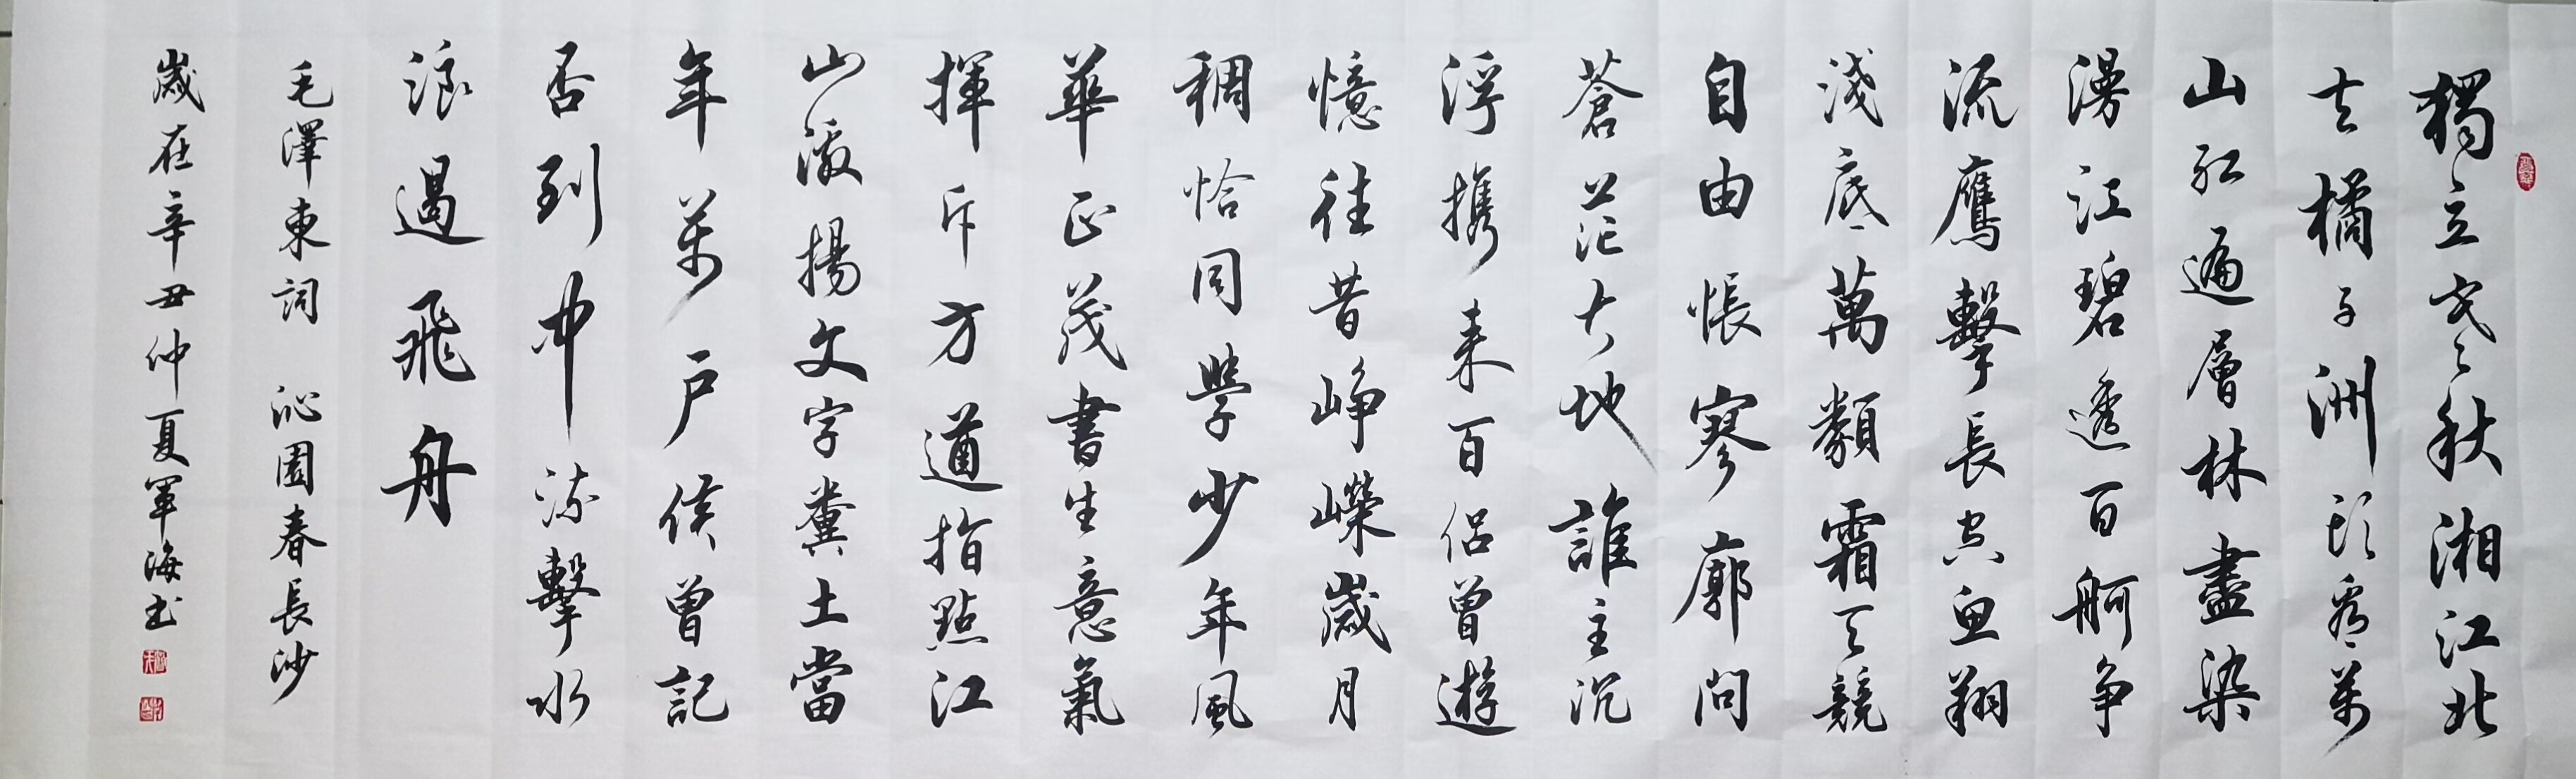 獨立寒秋湘江北
去橘子洲頭看萬
山紅遍層林盡染
漫江碧透百舸争
流鷹擊長空魚翔
淺底萬類霜天競
自由悵寥廓問
蒼茫大地誰主沉
浮携来百侣曾遊
憶往昔峥嶸歲月
稠恰同學少年風
華正茂書生意氣
揮斥方遒指點江
山激揚文字糞土當
年萬户侯曾記
否到中流擊水
浪遏飛舟
毛澤東詞 沁園春長沙
歲在辛丑仲夏軍海书